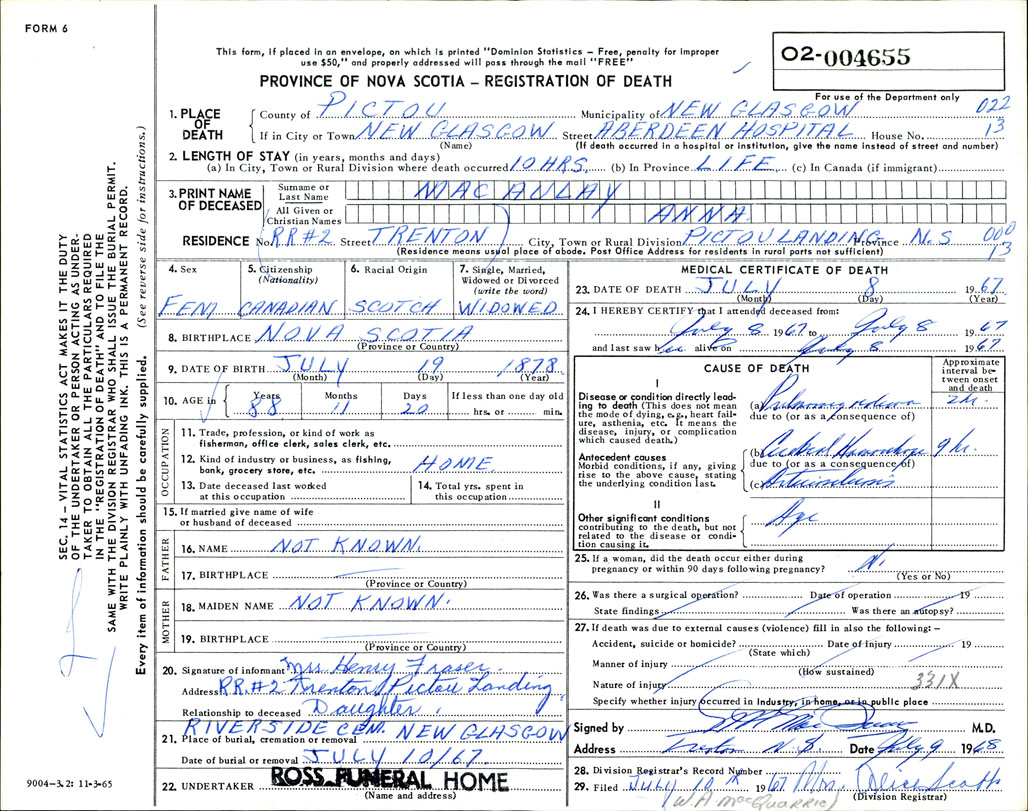 FORM 6
This form, if placed in an envelope, on which is printed "Dominion Statistics – Free, penalty for improper
use $50," and properly addressed will pass through the mail "FREE"
PROVINCE OF NOVA SCOTIA – REGISTRATION OF DEATH
O2-004655
For use of the Department only
1. PLACE OF DEATH
County of PICTOU Municipality of NEW GLASGOW 022
If in City or Town NEW GLASGOW Street ABERDEEN HOSPITAL House No. 13
(Name) (If death occurred in a hospital or institution, give the name instead of street and number)
2. LENGTH OF STAY (in years, months and days)
(a) In City, Town or Rural Division where death occurred 10 HRS. (b) In Province LIFE (c) In Canada (if immigrant)
3. PRINT NAME OF DECEASED
Surname or Last Name MACAULAY
All Given or Christian Names ANNA
RESIDENCE No. RR#2 Street TRENTON City, Town or Rural Division PICTOU LANDING Province N.S. 000
13
(Residence means usual place of abode. Post Office Address for residents in rural parts not sufficient)
SEC. 14 – VITAL STATISTICS ACT MAKES IT THE DUTY
OF THE UNDERTAKER OR PERSON ACTING AS UNDER-
TAKER TO OBTAIN ALL THE PARTICULARS REQUIRED
IN THE "REGISTRATION OF DEATH" AND TO FILE THE
SAME WITH THE DIVISION REGISTRAR WHO SHALL ISSUE THE BURIAL PERMIT.
WRITE PLAINLY WITH UNFADING INK. THIS IS A PERMANENT RECORD.
Every item of information should be carefully supplied. (See reverse side for instructions.)
4. Sex
FEM
5. Citizenship
(Nationality)
CANADIAN
6. Racial Origin
SCOTCH
7. Single, Married,
Widowed or Divorced
(write the word)
WIDOWED
8. BIRTHPLACE NOVA SCOTIA
(Province or Country)
9. DATE OF BIRTH JULY 19 1878
(Month) (Day) (Year)
10. AGE in
Years Months Days If less than one day old
88 11 20 hrs. or min.
OCCUPATION
11. Trade, profession, or kind of work as
fisherman, office clerk, sales clerk, etc.
12. Kind of industry or business, as fishing,
bank, grocery store, etc. HOME
13. Date deceased last worked
at this occupation
14. Total yrs. spent in
this occupation
15. If married give name of wife
or husband of deceased
FATHER
16. NAME NOT KNOWN.
17. BIRTHPLACE
(Province or Country)
MOTHER
18. MAIDEN NAME NOT KNOWN.
19. BIRTHPLACE
(Province or Country)
20. Signature of informant Mrs Henry Fraser.
Address RR.#2 Trenton, Pictou Landing.
Relationship to deceased Daughter.
RIVERSIDE CEM. NEW GLASGOW
21. Place of burial, cremation or removal
Date of burial or removal JULY 10/67.
22. UNDERTAKER ROSS FUNERAL HOME
(Name and address)
9004-3.2: 11-3-65
MEDICAL CERTIFICATE OF DEATH
23. DATE OF DEATH JULY 8 1967
(Month) (Day) (Year)
24. I HEREBY CERTIFY that I attended deceased from:
July 8 1967 to July 8 1967
and last saw her alive on July 8 1967
CAUSE OF DEATH
Approximate interval between onset and death
I
Disease or condition directly lead-
ing to death (This does not mean
the mode of dying, e.g., heart fail-
ure, asthenia, etc. It means the
disease, injury, or complication
which caused death.)
(a) Pulmonary edema 2 hr.
due to (or as a consequence of)
Antecedent causes
Morbid conditions, if any, giving
rise to the above cause, stating
the underlying condition last.
(b) Cerebral Hemorrhage 9 hr.
due to (or as a consequence of)
(c) Arteriosclerosis
II
Other significant conditions
contributing to the death, but not
related to the disease or condi-
tion causing it.
Age
25. If a woman, did the death occur either during
pregnancy or within 90 days following pregnancy? No
(Yes or No)
26. Was there a surgical operation? Date of operation 19
State findings Was there an autopsy?
27. If death was due to external causes (violence) fill in also the following: –
Accident, suicide or homicide? Date of injury 19
(State which)
Manner of injury
(How sustained)
Nature of injury 331X
Specify whether injury occurred in Industry, in home, or in public place
Signed by M.D.
Address Trenton N.S Date July 9 1968
28. Division Registrar's Record Number
29. Filed July 10 1967 Mrs. Alice Scott
(Division Registrar)
W A MacQuarrie